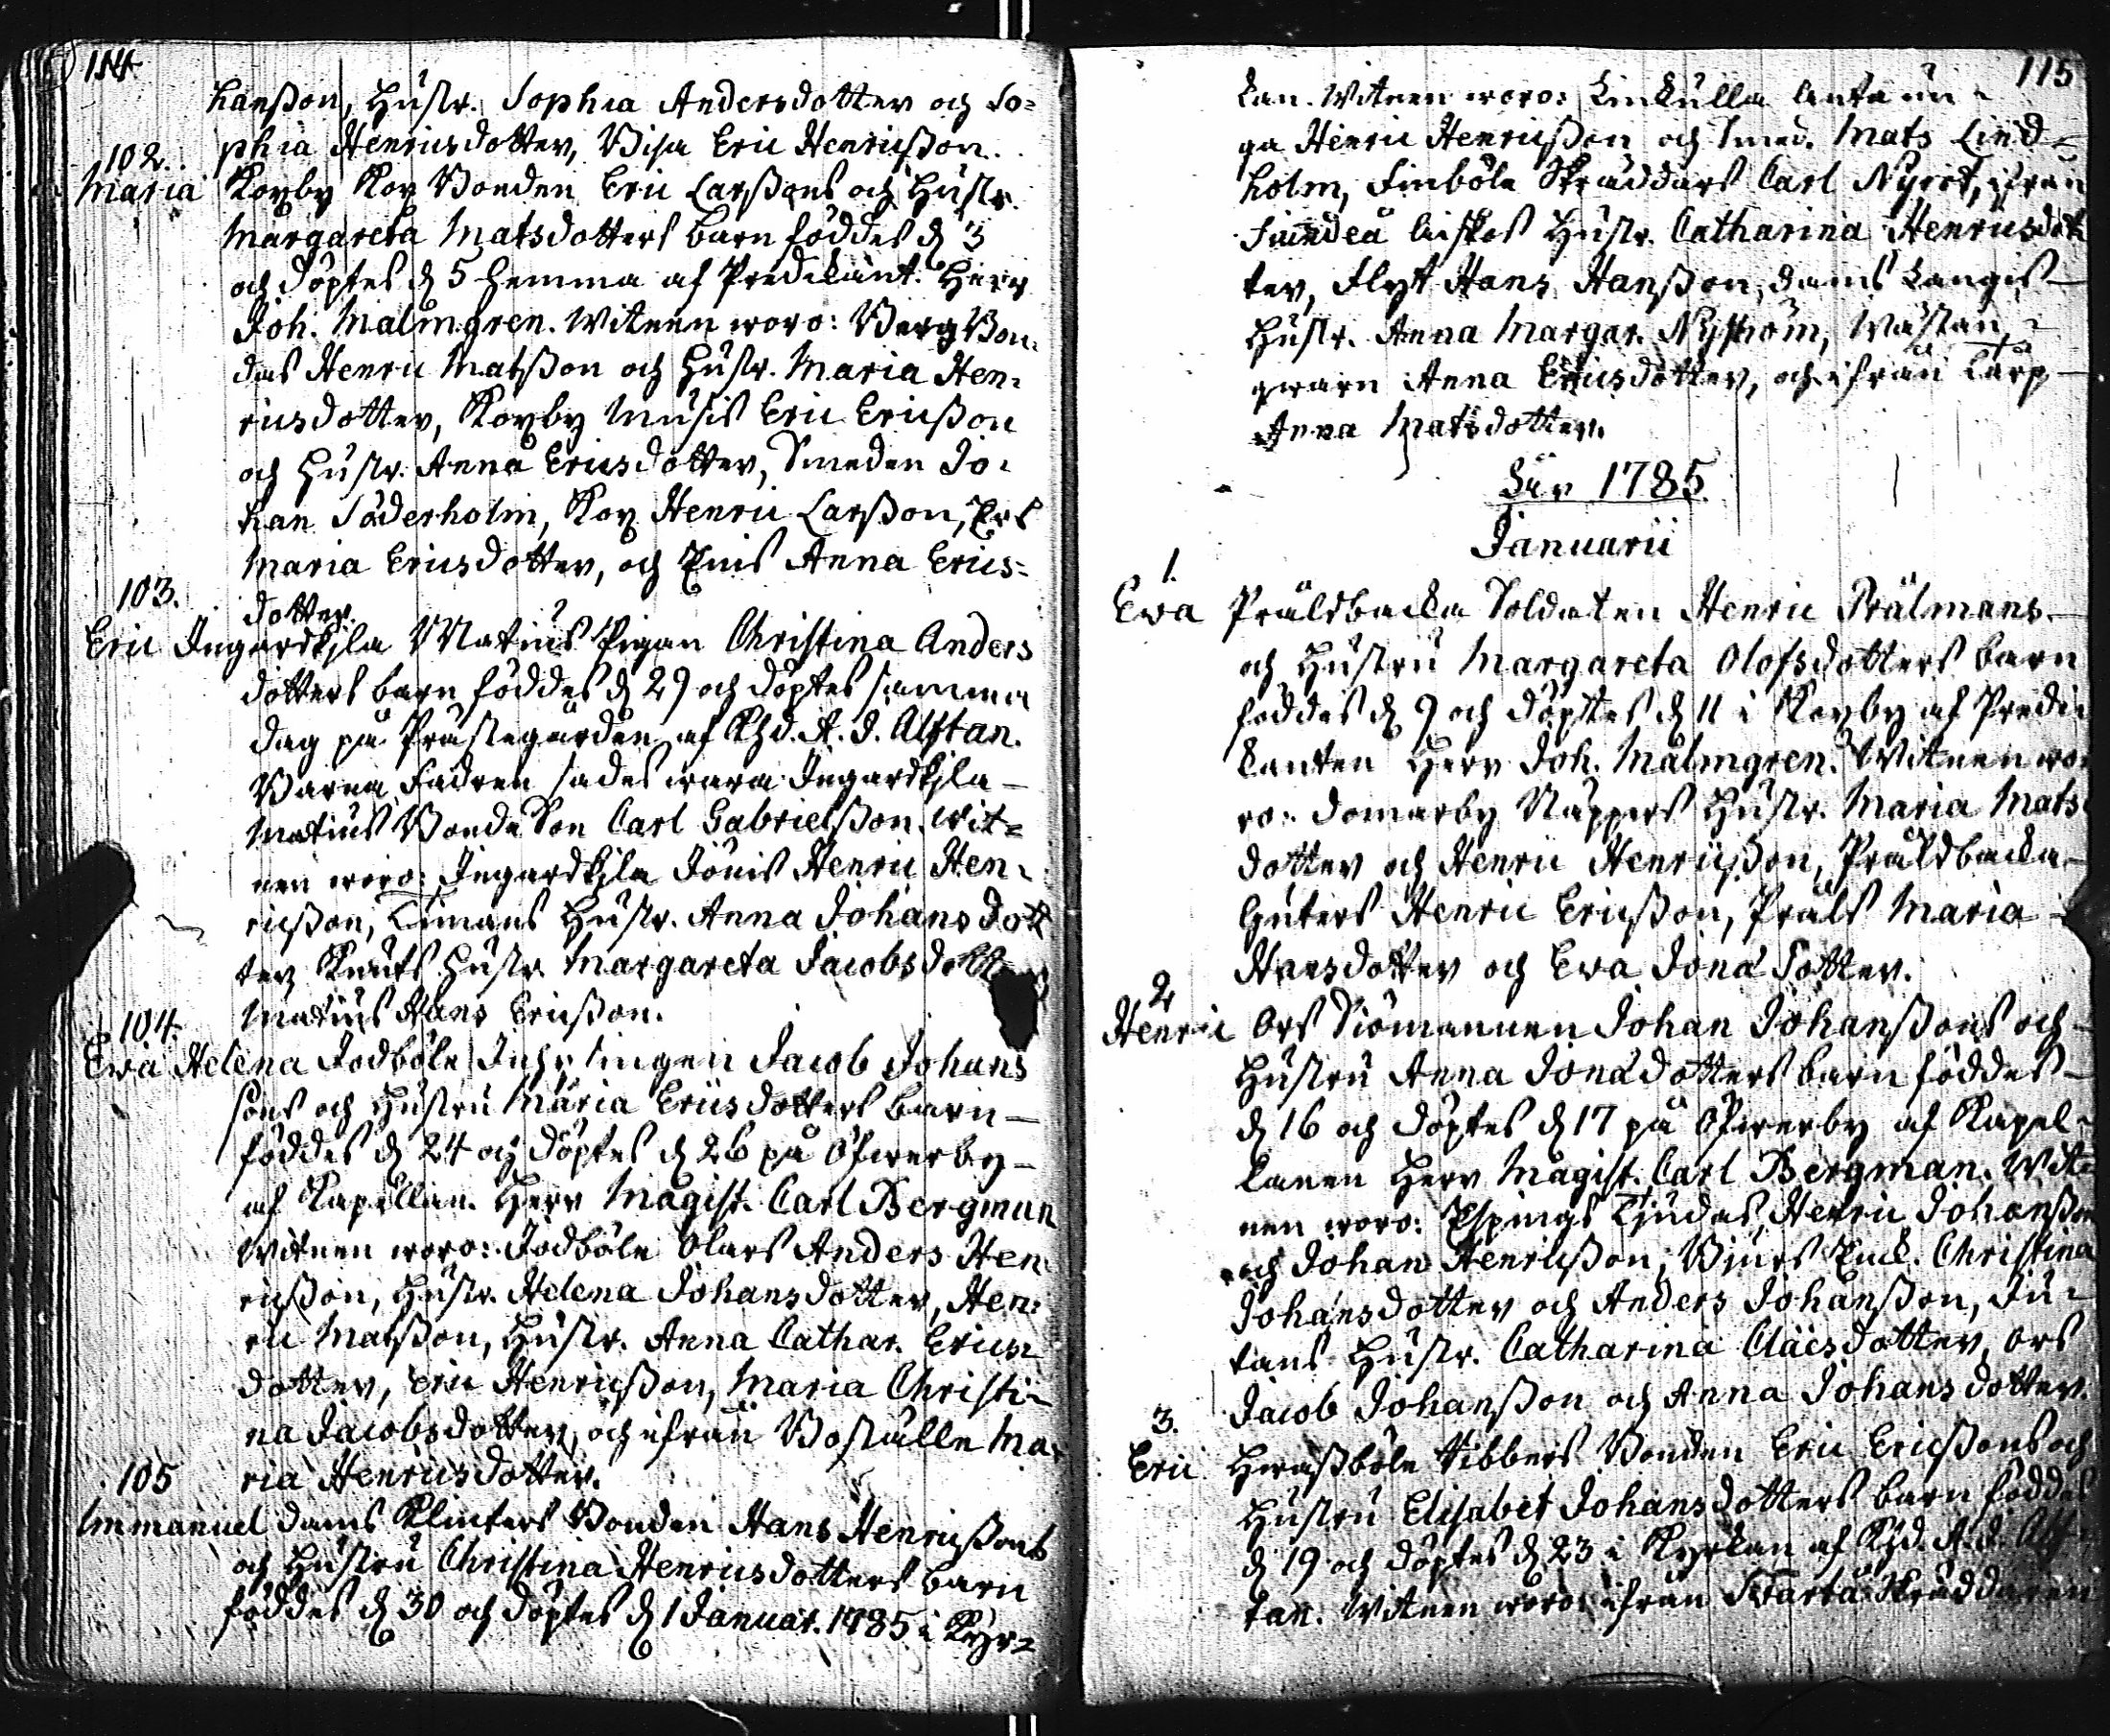 114
hanßon, Hustr. Sophia Andersdotter och So=
phia Henricsdotter, Eric Henricßon.
102.
Maria Koxby Kox Bonden Eric Larßons och Hustr.
Margareta Matsdotters barn föddes d. 3
och döptes d. 5 hemma af Predikant. Herr
Joh. Malmgren. Witnen woro: Berg Bon=
das Henric Matsßon och Hustr. Maria Hen=
ricsdotter, Koxby Eric Ericßon
och Hustr. Anna Ericsdotter, Smeden Jo=
han Söderholm, Kox Henric Larßon,
Maria Ericsdotter, och Anna Erics=
dotter.
103.
Eric Ingardskjla Matius Pigan Christina Anders
dotters barn föddes d. 29 och döptes samma
dag på Prästegården af Khd. A. J. Alftan.
Barna Fadren sades wara Ingardskjla
Matius Bonde Son Carl Gabrielsßon. Wit=
nen woro: Ingardskjla Jönis Henric Hen=
ricßon, Hustr. Anna Johansdot
ter Knuts Hustr. Margareta Jacobsdott
Matius Hans Ericßon.
104.
Ewa Helena Jodböle Jacob Johans
sons och Hustru Maria Ericsdotters barn
föddes d. 24 och döptes d. 26 på Öfwerby
af Kapellan. Herr Magist. Carl Bergman
Witnen woro: Jodböle Olars Anders Hen
ricßon, Hustr. Helena Johansdotter, Hen=
ric Matsßon, Hustr. Anna Cathar. Erics=
dotter, Eric Henricßon, Maria Christi=
na Jacobsdotter, och ifrån Boställe Ma=
ria Henricsdotter.
105
Immanuel Dams Klinkers Bonden Hans Henricßons
och Hustru Christina Henricsdotters barn
föddes d. 30 och döptes d. 1 Januar. 1785 i Kyr=
115
kan. Witnen woro: Linkulla
ga Henric Henricßon och Smed. Mats Lind=
holm, Finböle Skräddars Carl ifrån
Hustr. Catharina Henricsdot
ter, Flyt Hans Hanßon, Dams
Hustr. Anna Margar. Nyström, Wästan=
qwarn Anna Ericsdotter, och ifrån
Anna Matsdotter.
År 1785
Januarii
1.
Ewa Präldbacka Soldaten Henric Prälmans
och Hustru Margareta Olofsdotters barn
föddes d. 9 och döptes d. 11 i Koxby af Predi
kanten Herr Joh. Malmgren. Witnen wo
ro: Domarby Näppers Hustr. Maria Mats
dotter och Henric Henricßon, Präldbacka
Henric Ericßon, Präls Maria
Hansdotter och Ewa Jona dotter.
2
Henric Ors Siömannen Johan Johanßons och
Hustru Anna Jona dotters barn föddes
d. 16 och döptes d. 17 på Öfwerby af Kapel=
lanen Herr Magist. Carl Bergman. Wit=
nen woro: Espings Tjudas Henric Johanßon
och Johan Henricßon, Bjurs Christina
Johansdotter och Anders Johanßon, Ju=
tans Hustr. Catharina Claesdotter, Ors
Jacob Johanßon och Anna Johansdotter.
3.
Eric Hwaßböle Tibbers Bonden Eric Ericßons och
Hustru Elisabet Johansdotters barn föddes
d. 19 och döptes d. 23 i Kyrkan af Khd. A. J. Alf=
tan. Witnen woro: ifrån Swartå Skräddaren